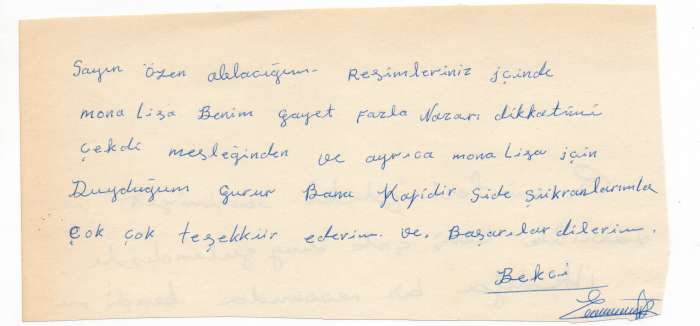 Sayın Özen ablacığım. Resimleriniz içinde
mona Lisa Benim gayet fazla Nazarı dikkatimi
çekdi mesleğinden ve ayrıca mona Lisa için
Duyduğum gurur Bana Kafidir Side Şükranlarımla
Çok çok teşekkür ederim. ve. Başarılar dilerim.
Bekci